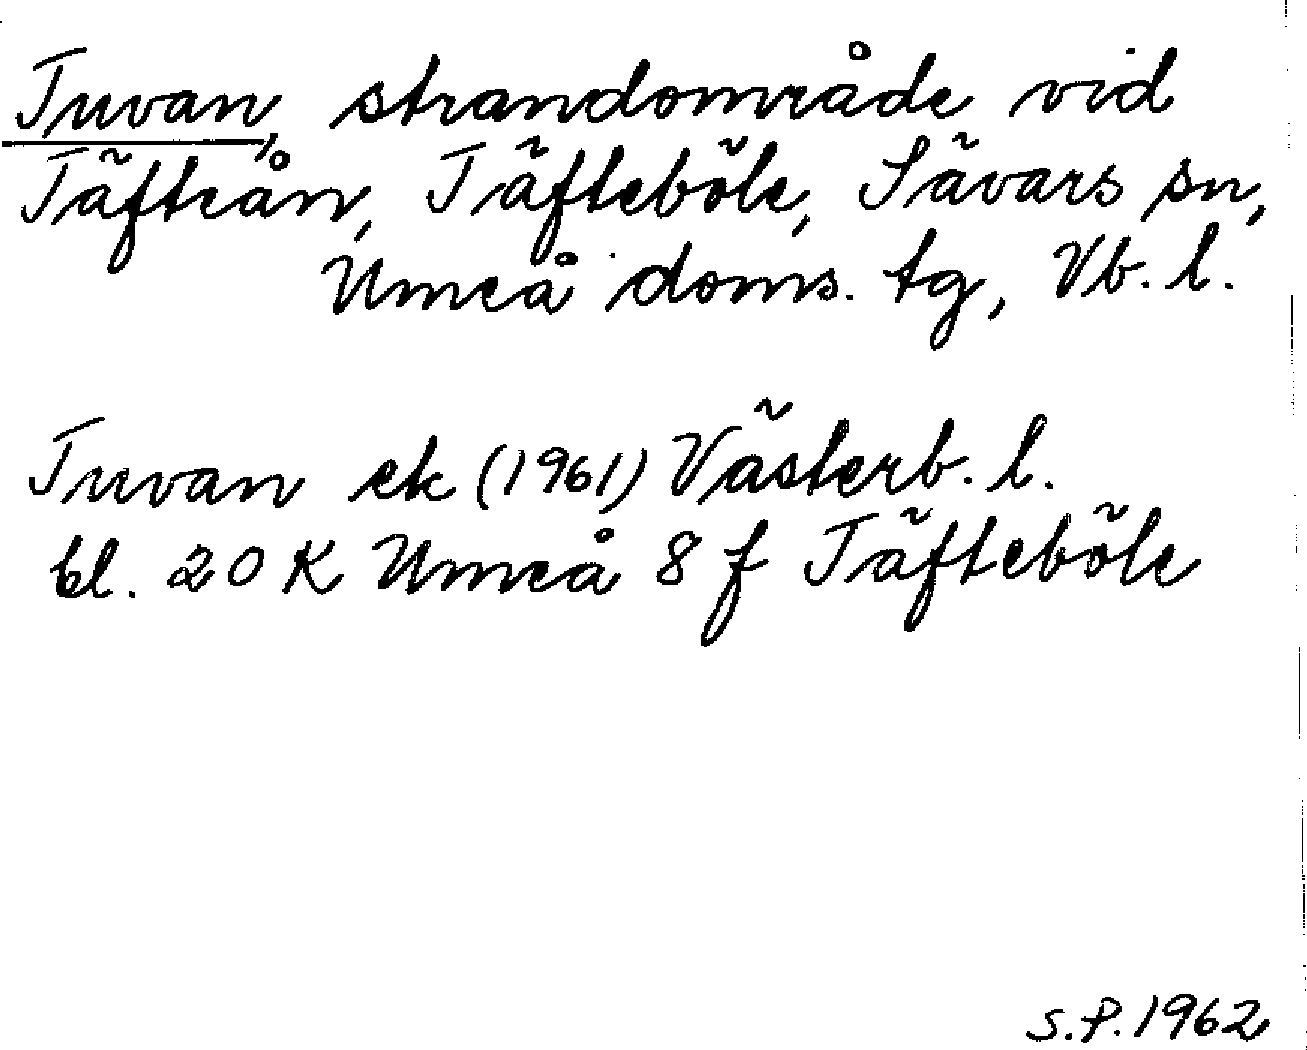 Tuvan, strandområde vid
Täfteån, Täfteböle, Sävars sn,
Umeå doms. tg, Vb. l.
Tuvan ek (1961) Västerb. l.
bl. 20 K Umeå 8 f Täfteböle
S.P. 1962